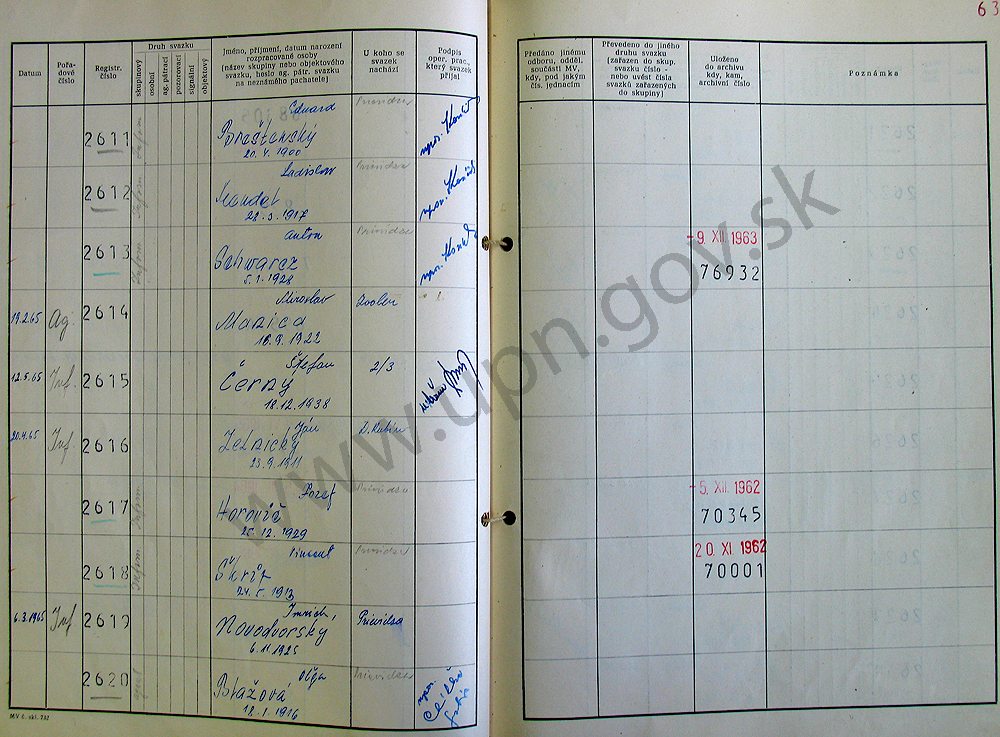 63
Datum
Pořa-
dové
číslo
Registr.
číslo
Druh svazku
skupinový
osobní
ag. pátrací
pozorovací
signální
objektový
Jméno, příjmení, datum narození
rozpracované osoby
(název skupiny nebo objektového
svazku, heslo ag. pátr. svazku
na neznámého pachatele)
U koho se
svazek
nachází
Podpis
oper. prac.,
který svazek
přijal
Předáno jinému
odboru, odděl.
součásti MV,
kdy, pod jakým
čís. jednacím
Převedeno do jiného
druhu svazku
(zařazen do skup.
svazku číslo -
nebo uvést čísla
svazků zařazených
do skupiny)
Uloženo
do archivu
kdy, kam,
archivní číslo
Poznámka
Eduard
Prievidza
2611
20. 4. 1900
Ladislav
Prievidza
2612
Mandel
28. 3. 1917
Anton
Prievidza
2613
Schwarcz
5. 1. 1928
- 9. XII. 1963
76932
Miroslav
Zvolen
19.2.65
Ag.
2614
Manica
16. 9. 1922
Štefan
2/3
12.5.65
Inf.
2615
Černý
18. 12. 1938
Ján
D. Kubín
20.4.65
Inf.
2616
Zelnický
23. 9. 1911
Jozef
Prievidza
2617
Horovič
25. 12. 1929
- 5. XII. 1962
70345
Vincent
Prievidza
2618
20. XI 1962
70001
Imrich,
Prievidza
6.3.1965
Inf
2619
Novodvorský
6. 11. 1925
Oľga
Prievidza
2620
Blažová
18. 1. 1916
www.upn.gov.sk